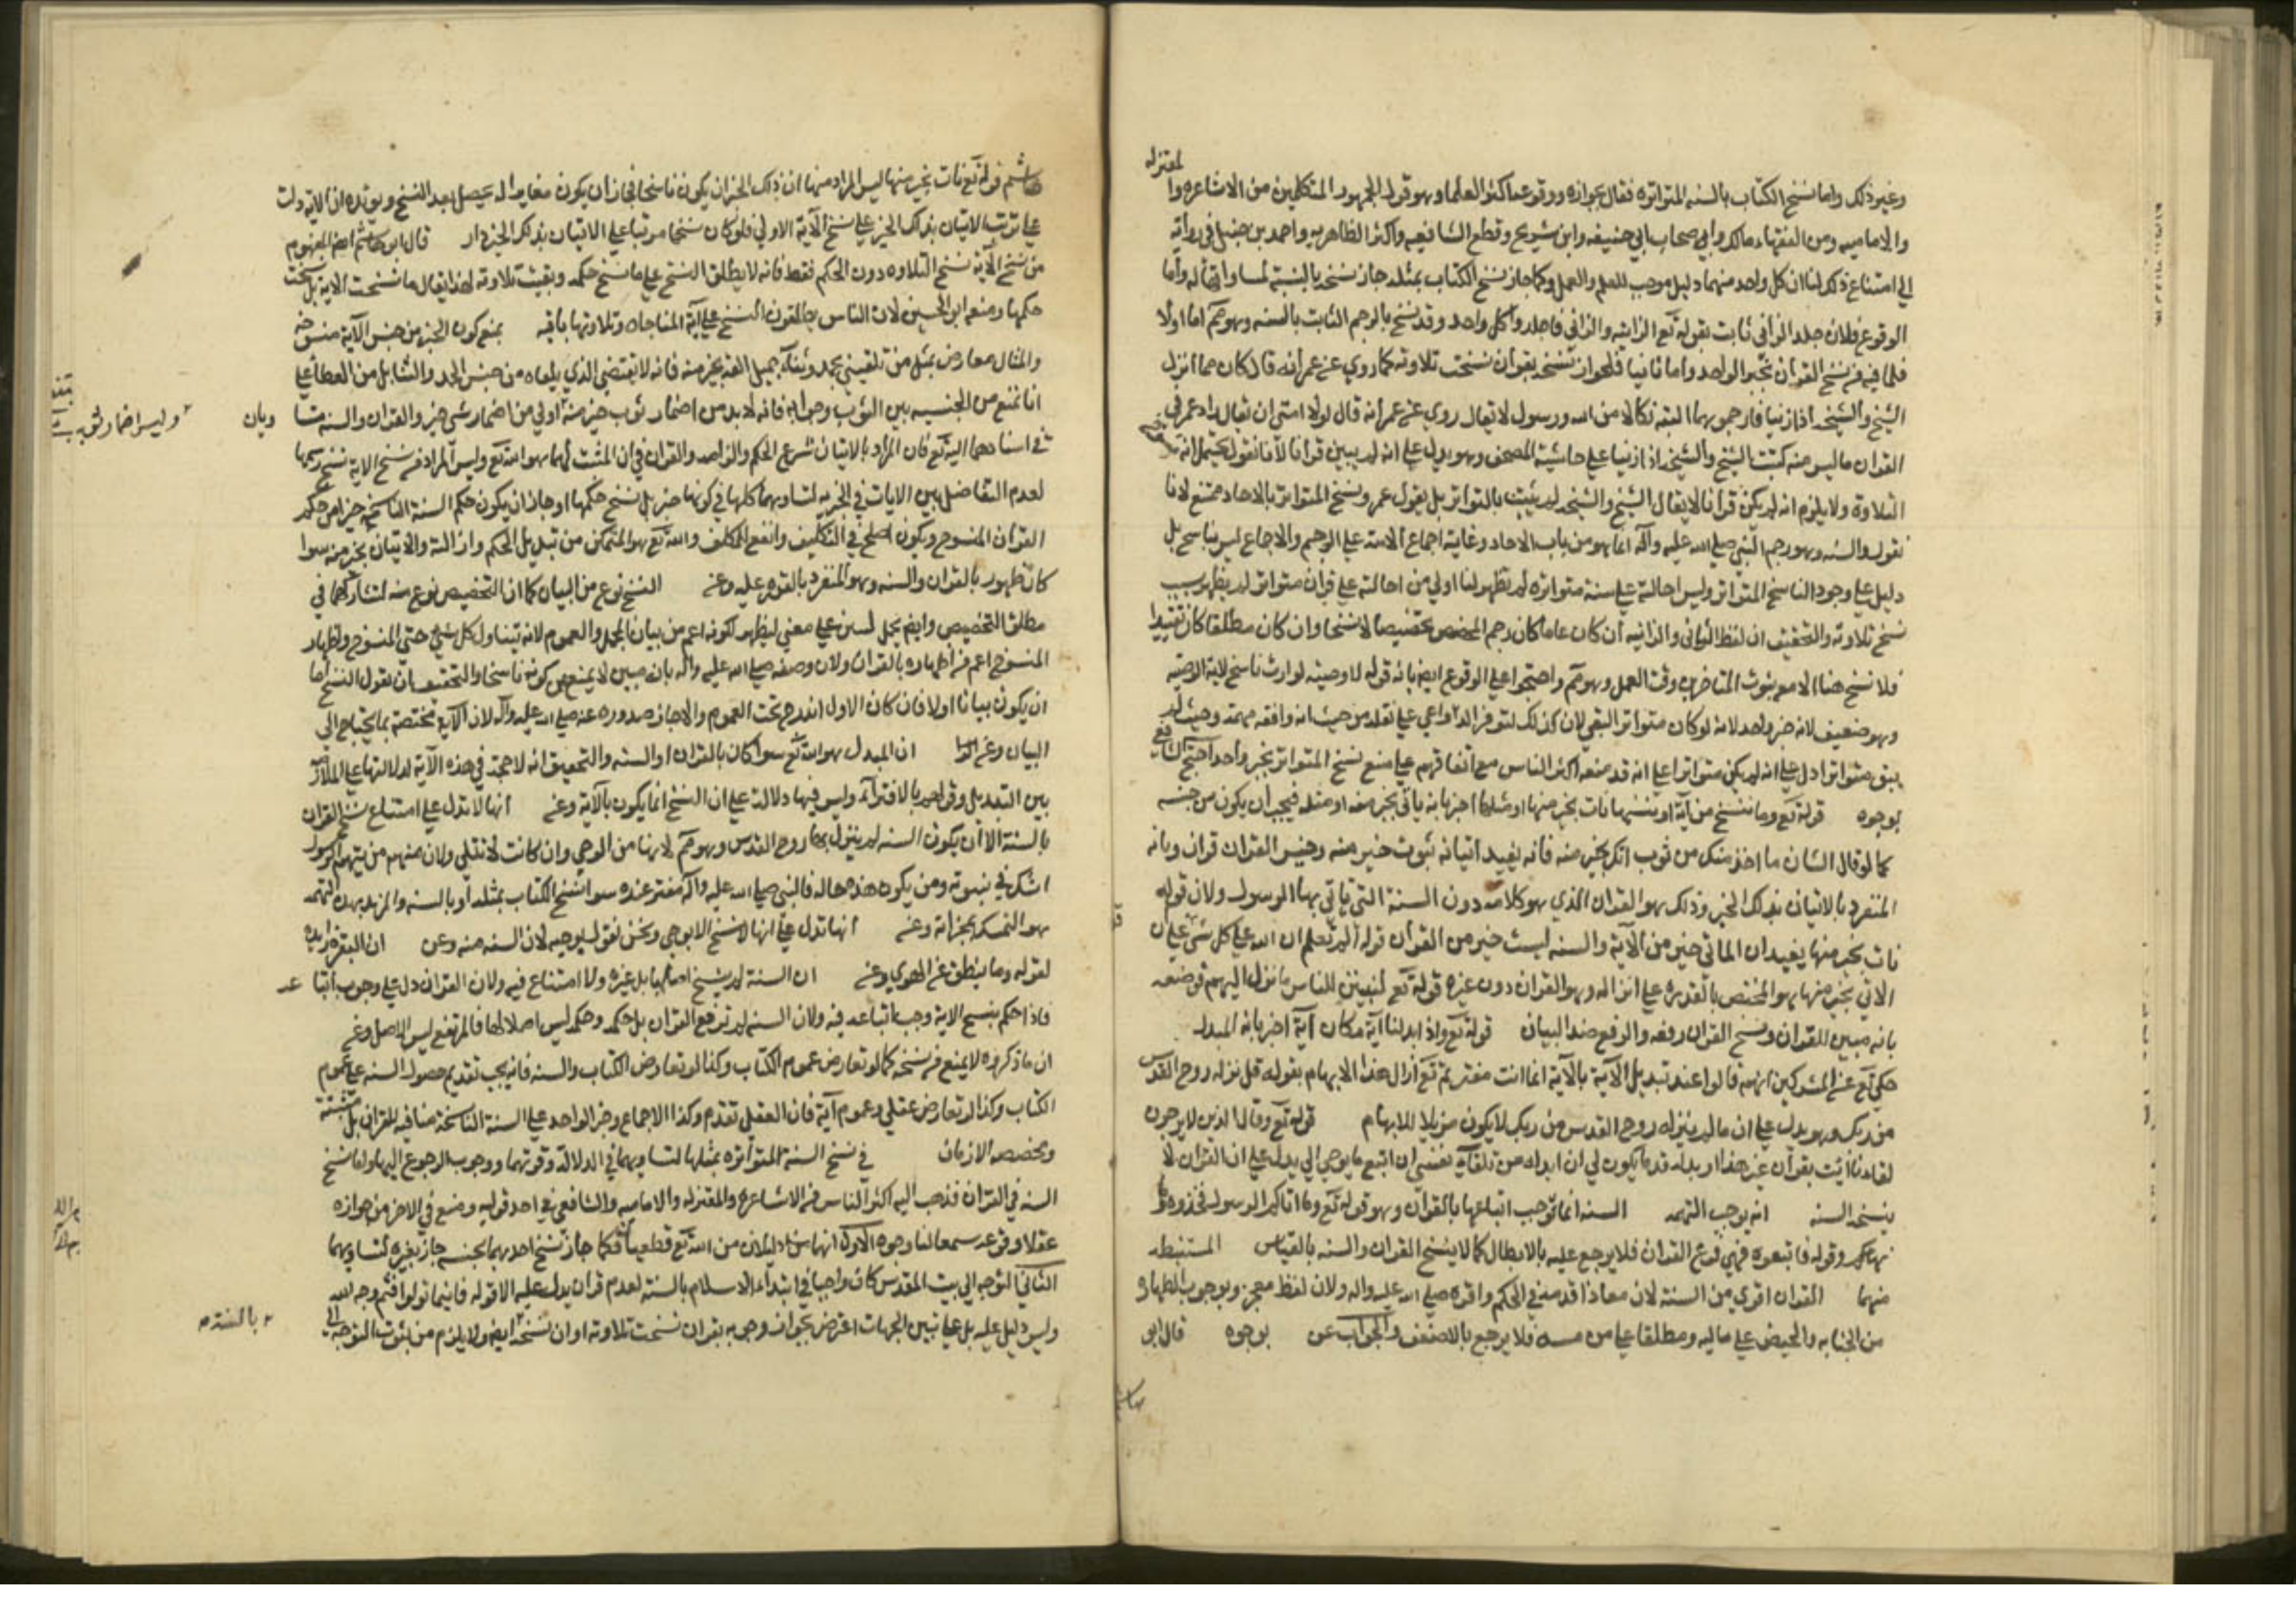 وغير ذلك واما نسخ الكتاب بالسنه المتواتره فقال بجوازه ووقوعه اكثر العلما وهو قول الجمهور المتكلمين من الاشاعره وا
لمعتزله
والاماميه ومن الفقهاء مالك وابي صحاب ابي حنيفه وابن شريح وقطع الشافعيه واكثر الظاهريه واحمد بن حنبل في رواية
الي امتناع ذكر لنا ان كل واحد منهما دليل موجب للعلم والعمل وكما جاز نسخ الكتاب بمثله جاز نسخه بالسنة لمساواتها له واما
الوقوع فلان جلد الزاني ثابت بقوله تع الزانيه والزاني فاجلدوا كل واحد وقد نسخ بالرجم الثابت بالسنه وهو مم اما اولا
فلما فيه من نسخ القران بخبر الواحد واما ثانيا فلجواز نسخه بقران نسخت تلاوته كما روي عن عمر انه قال كان مما انزل
الشيخ والشيخه اذا زنيا فارجموهما البته نكالا من الله ورسوله لا يقال روي عن عمر انه قال لولا اني ان يقال زاد عمر في
القران ما ليس منه كتبت الشيخ والشيخه اذا زنيا علي حاشية المصحف وهو يدل علي انه لم يبين قرانا لانا نقول يحتمل انه
التلاوة ولا يلزم انه لم يكن قرانا لا يقال الشيخ والشيخه لم يثبت بالتواتر بل بقول عمر ونسخ المتواتر بالاحاد ممتنع لانا
نقول والسنه وهو رجم النبي صلي الله عليه وآله انما هو من باب الاحاد وغاية اجماع الامة علي الرجم والاجماع ليس بناسخ بل
دليل علي وجود الناسخ المتواتر وليس احالته علي سنة متواتره لم تظهر لنا اولي من احالته علي قران متواتر لم يظهر بسبب
نسخ تلاوته والتحقيق ان لفظ الزاني والزانيه ان كان عاما كان رجم المحصن تخصيصا لا نسخا وان كان مطلقا كان تقييدا
فلا نسخ هنا الا مع ثبوت المتاخر وقت العمل وهو مم واحتجوا علي الوقوع ايضا بانه قوله لا وصيه لوارث ناسخ لاية الوصيه
وهو ضعيف لانه خبر واحد لانه لو كان متواترا لبقي لان كذلك لتوفر الدواعي علي نقله من حيث انه واقعه مهمة وحيث لم
يبق متواترا دل علي انه لم يكن متواترا علي انه قد منعه اكثر الناس مع اتفاقهم علي منع نسخ المتواتر بخبر واحد احتج الشافعي
بوجوه قوله تع وما ننسخ من آية او ننسها نات بخير منها او مثلها اخبر بانه ياتي بخير منه او مثله فيجب ان يكون من جنسه
كما لو قال انسان ما اخذ منك من ثوب اتك بخير منه فانه يفيد اتيانه بثوب خير منه وجنس القران قران وبانه
المنفرد بالاتيان بذلك الخير وذلك هو القران الذي هو كلامه دون السنة التي ياتي بها الرسول ولان قوله
نات بخير منها يفيد ان الماتي خير من الآية والسنه ليست خير من القران قوله الم تعلم ان الله علي كل شئ علي ان
الاتي بخير منها هو المختص بالقدره علي انزاله وهو القران دون غيره قوله تع لتبين للناس ما نزل اليهم فوصفه
بانه مبين للقران ونسخ القران رفعه والرفع ضد البيان قوله تع واذا بدلنا آية مكان آية اخبر بانه المبدل
حكي تع عن المشركين انهم قالوا عند تبديل الآية بالآية انما انت مفتر ثم تع ازال هذا الايهام بقوله قل نزله روح القدس
من ربك وهو يدل علي ان ما لم ينزله روح القدس من ربك لا يكون مزيلا للايهام قوله تع وقال الذين لا يرجون
لقاءنا ائت بقران غير هذا او بدله قل ما يكون لي ان ابدله من تلقاي نفسي ان اتبع ما يوحي الي يدل علي ان القران لا
ينسخه السنه انه يوجب التهمه السنه انما توجب اتباعها بالقران وهو قوله تع وما اتاكم الرسول فخذوه وما
نهاكم وقوله فاتبعوه فهي فرع القران فلا يرجع عليه بالابطال كما لا ينسخ القران والسنه بالقياس المستنبط
منهما القران اقوي من السنة لان معاذا قدمه في الحكم واقره صلي الله عليه واله ولان لفظ معجز ووجوب الطهاره
من الجنابه والحيض علي تاليه ومطلقا علي من مسه فلا يرجع بالاضعف والجواب عن بوجوه قال ابو
هاشم
هاشم قوله تع نات بخير منها ليس المراد منها ان ذلك الخير ان يكون ناسخا فجاز ان يكون مغايرا له يحصل بعد النسخ ويؤيده ان الاية دلت
علي ترتب الاتيان بذلك الخير علي نسخ الآية الاولي فلو كان نسخها مرتبا علي الاتيان بذلك الخير دار قال ابو هاشم ايضا المفهوم
من نسخ الآية نسخ التلاوه دون الحكم فقط فانه لا يطلق النسخ علي ما نسخ حكمه وبقيت تلاوته لهذا يقال ما نسخت الاية بل نسخت
حكمها ومنعه ابو الحسين لان الناس يطلقون النسخ علي آية المناجاة وتلاوتها باقيه بمنع كون الخير من جنس الآية منسوخه
والمثال معارض بمثل من تلقيني بحمد وثناء جميل القه بخير منه فانه لا يقتضي الذي يلقاه من جنس الحمد والثنا بل من العطا علي
انا نمنع من الجنسيه بين الثوب وجوابه فانه لا بد من اضمار ثوب خير منه اولي من اضمار شئ خير والقران والسنه متسا وبان
وليس اضمار ثوب
في اسنادهما اليه تع فان المراد بالاتيان شرع الحكم والزامه والقران في ان المثبت لهما هو الله تع وليس المراد من نسخ الاية نسخ رسمها
لعدم التفاضل بين الايات في الخيريه لتساويهما كلها في كونها خير بل نسخ حكمها او جاز ان يكون حكم السنة الناسخه خيرا من حكم
القران المنسوخ ويكون اصلح في التكليف وانفع للمكلف والله تع هو المتمكن من تبديل الحكم وازالته والاتيان بخير منه سوا
كان ظهور بالقران والسنه وهو المنفرد بالقدره عليه وعن النسخ نوع من البيان كما ان التخصيص نوع منه لتشاركهما في
مطلق التخصيص وايضا يحمل لتبين علي معني ليظهر لكونه اعم من بيان المجمل والعموم لانه يتناول كل شئ حتي المنسوخ واظهار
المنسوخ اعم من اظهاره بالقران ولان وصفه صلي الله عليه واله بانه مبين لا يمنع من كونه ناسخا والتحقيق ان نقول النسخ اما
ان يكون بيانا اولا فان كان الاول اندرج تحت العموم والا جاز صدوره عنه صلي الله عليه واله لان الآية مختصة بما يحتاج الي
البيان وعن ان المبدل هو الله تع سوا كان بالقران او السنه والتحقيق انه لا حجة في هذه الآية لدلالتها علي الملازمة
بين التبديل وقولهم بالافتراء وليس فيها دلالة علي ان النسخ انما يكون بالآية وعن انها لا تدل علي امتناع نسخ القران
بالسنة الا ان يكون السنه لم ينزل بها روح القدس وهو مم لانها من الوحي وان كانت لا تتلي ولان منهم من يتهم الرسول
اشك في نبوته ومن يكون هذه حاله فالنبي صلي الله عليه واله مفتر عنده سوا نسخ الكتاب بمثله او بالسنه والمزيد بهذه التهمه
هو التمسك بمعجزاته وعن انها تدل علي انها لا تنسخ الا بوحي ونحن نقول بموجبه لان السنه منه وعن ان النفره زايده
لقوله وما ينطق عن الهوي وعن ان السنة لم تنسخ اصلها بل غيره ولا امتناع فيه ولان القران دل علي وجوب اتباعه
فاذا حكم بنسخ الاية وجب اتباعه فيه ولان السنه لم ترفع القران بل حكمه وحكمه ليس اصلا لها فالمرتفع ليس الاصل وعن
ان ما ذكروه لا يمنع من نسخه كما لو تعارض عموم الكتاب وكذا لو تعارض الكتاب والسنه فانه يجب تقديم خصوص السنه علي عموم
الكتاب وكذا لو تعارض عقلي وعموم آية فان العقلي تقدم وكذا الاجماع وخبر الواحد علي السنة الناسخة منافيه للقران بل مبينة
ومخصصه الازمان في نسخ السنه المتواتره بمثلها لتساويهما في الدلالة وقوتهما ووجوب الرجوع اليها واما نسخ
السنه في القران فذهب اليه اكثر الناس من الاشاعره والمعتزله والاماميه والشافعي في احد قوليه ومنع في الاخر من جوازه
عقلا ووقوعه سمعا لنا وجوه الاول انهما دليلان من الله تع قطعيان فكما جاز نسخ احدهما بجنسه جاز بغيره لتساويهما
الثاني التوجه الي بيت المقدس كان واجبا في ابتداء الاسلام بالسنة لعدم قران يدل عليه الا قوله فاينما تولوا فثم وجه الله
وليس دليل عليه بل علي تبيين الجهات اعترض بجواز وجوبه بقران نسخت تلاوته او ان نسخه ايضا ولا يلزم من ثبوت التوجه الي
بالسنة